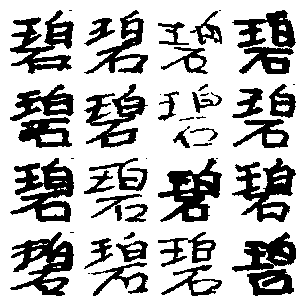 碧碧碧碧
碧碧碧碧
碧碧碧碧
碧碧碧碧